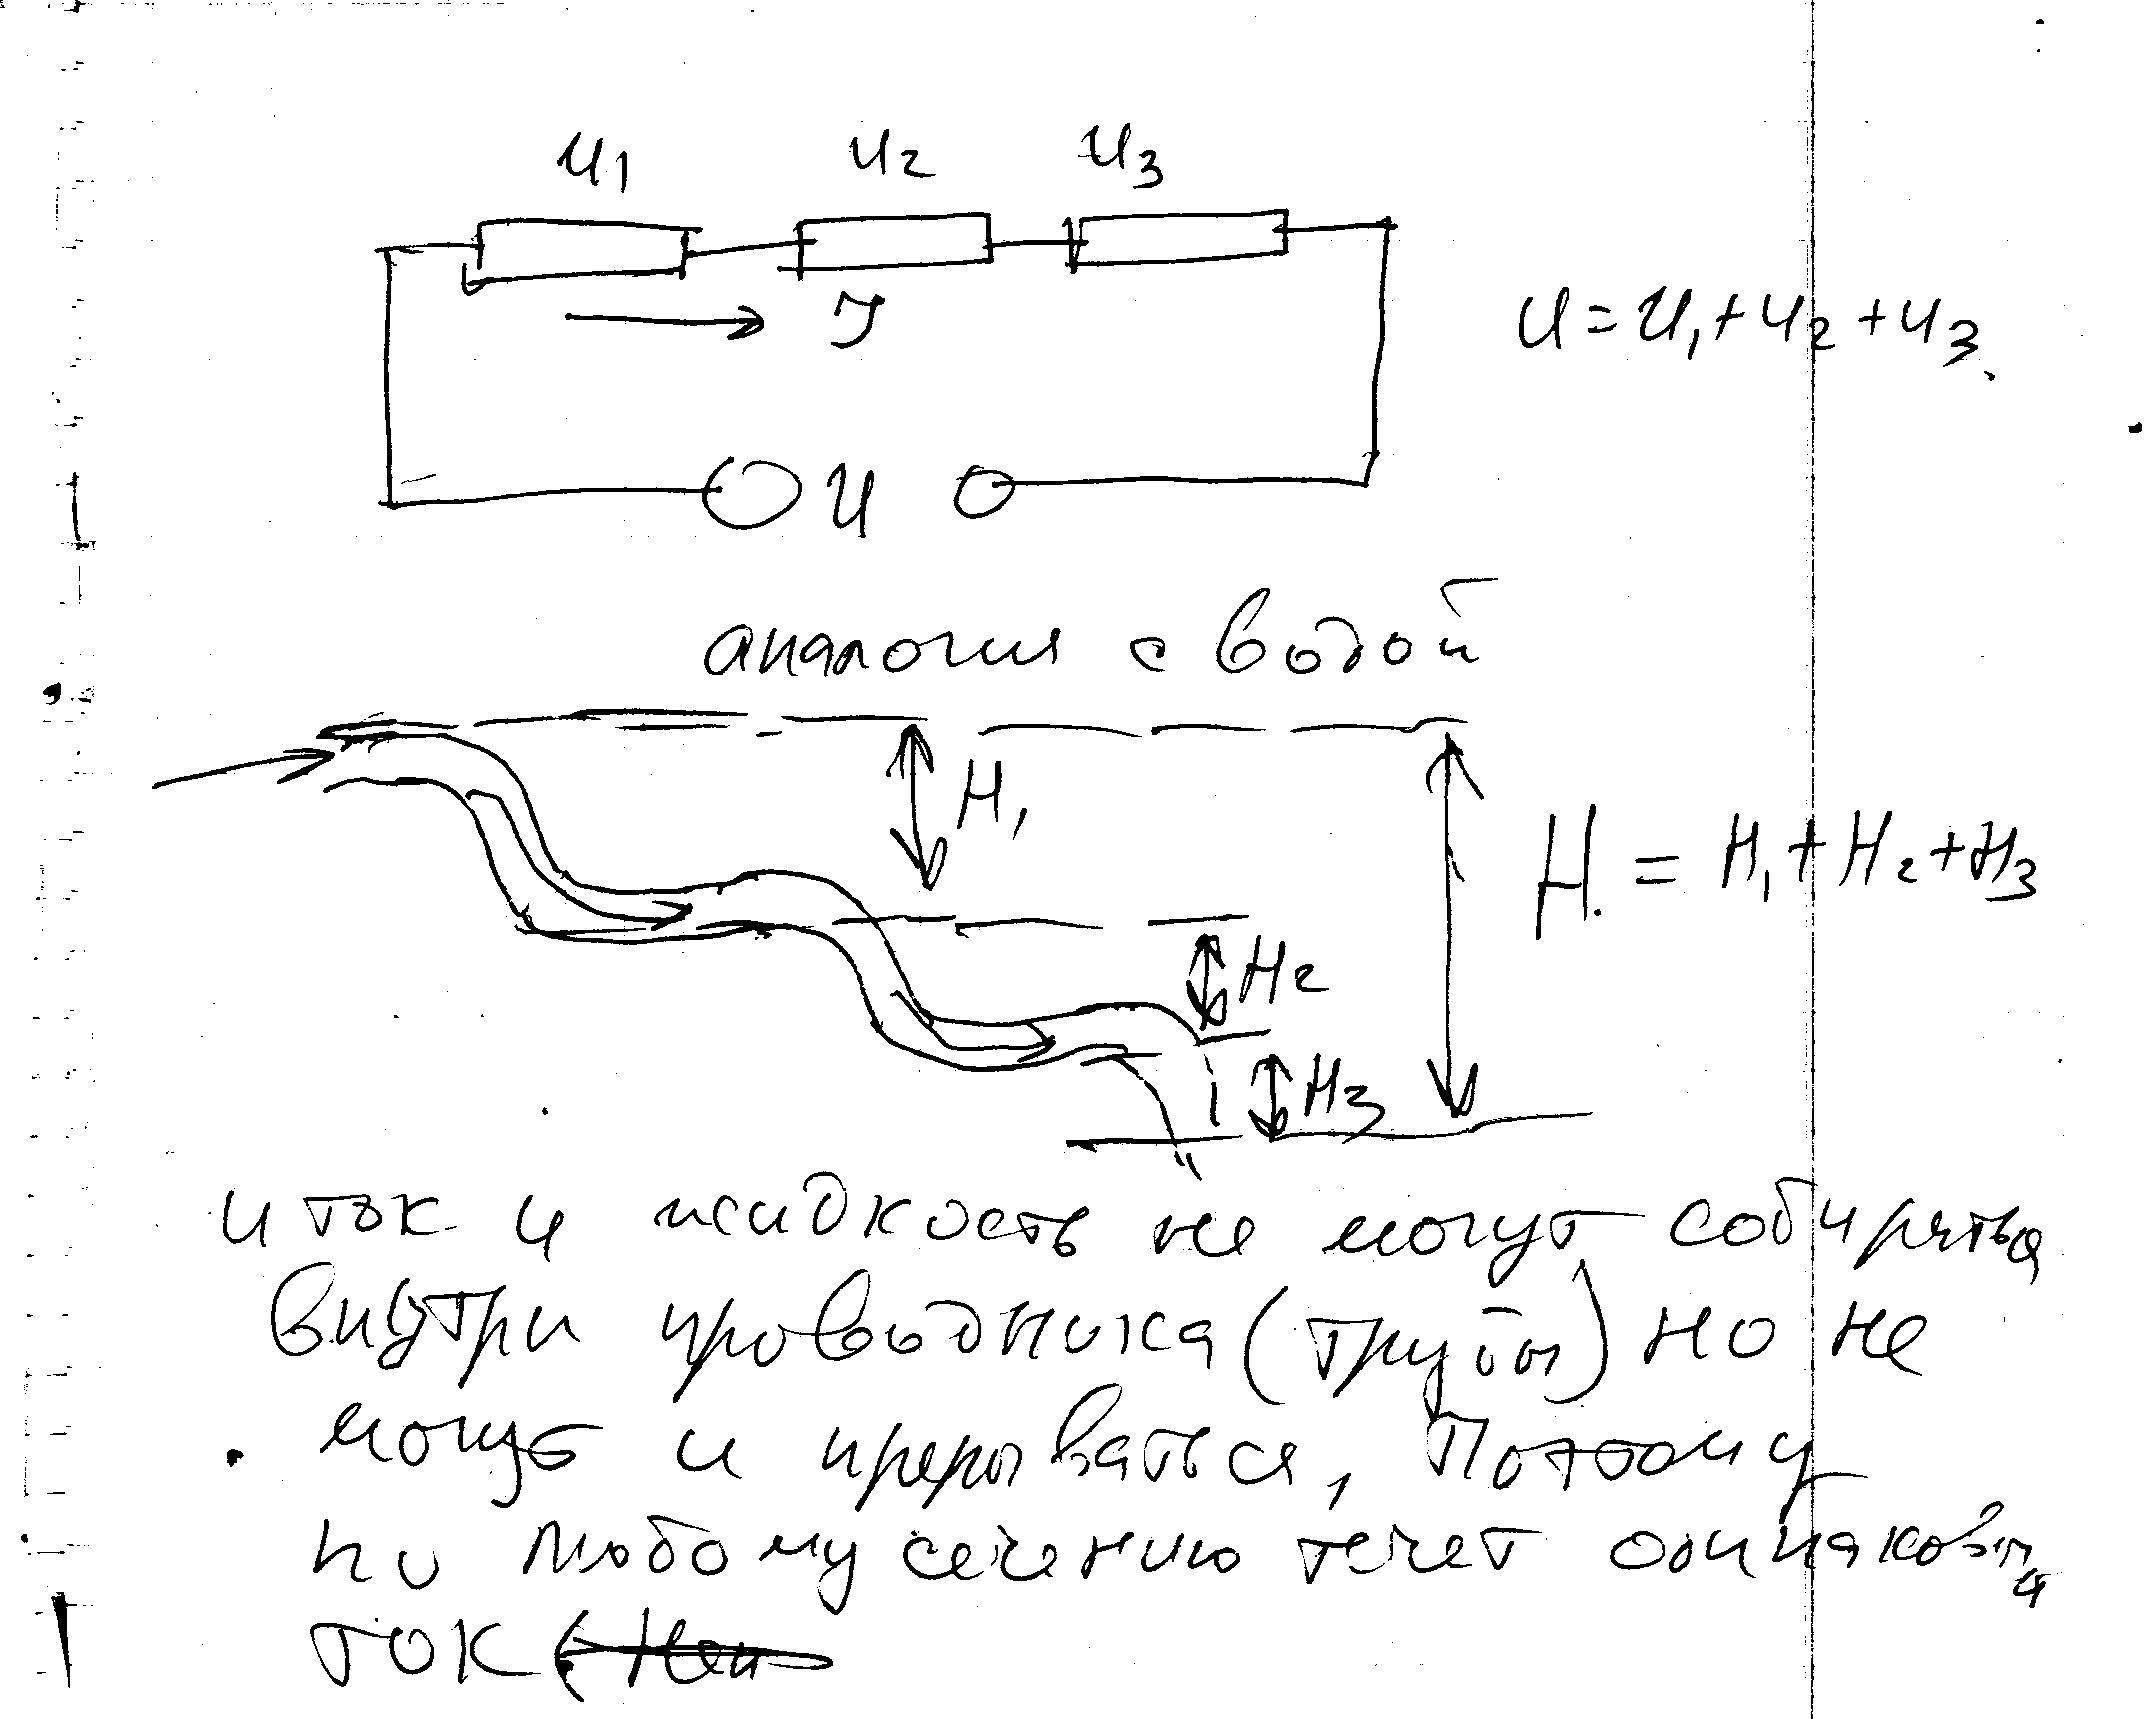 U1 U2 U3
I
U = U1 + U2 + U3
U
аналогия с водой
H1
H = H1 + H2 + H3
H2
H3
и ток и жидкость не могут собираться
внутри проводника (трубы) но не
могут и прерываться, Поэтому
по любому сечению течет одинаковый
ток